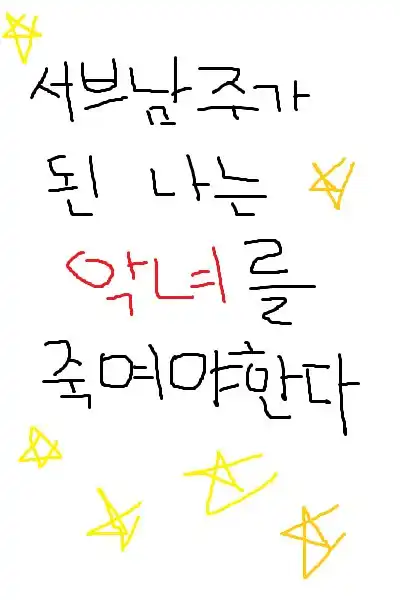 서브남주가
된 나는
악녀를
죽여야한다